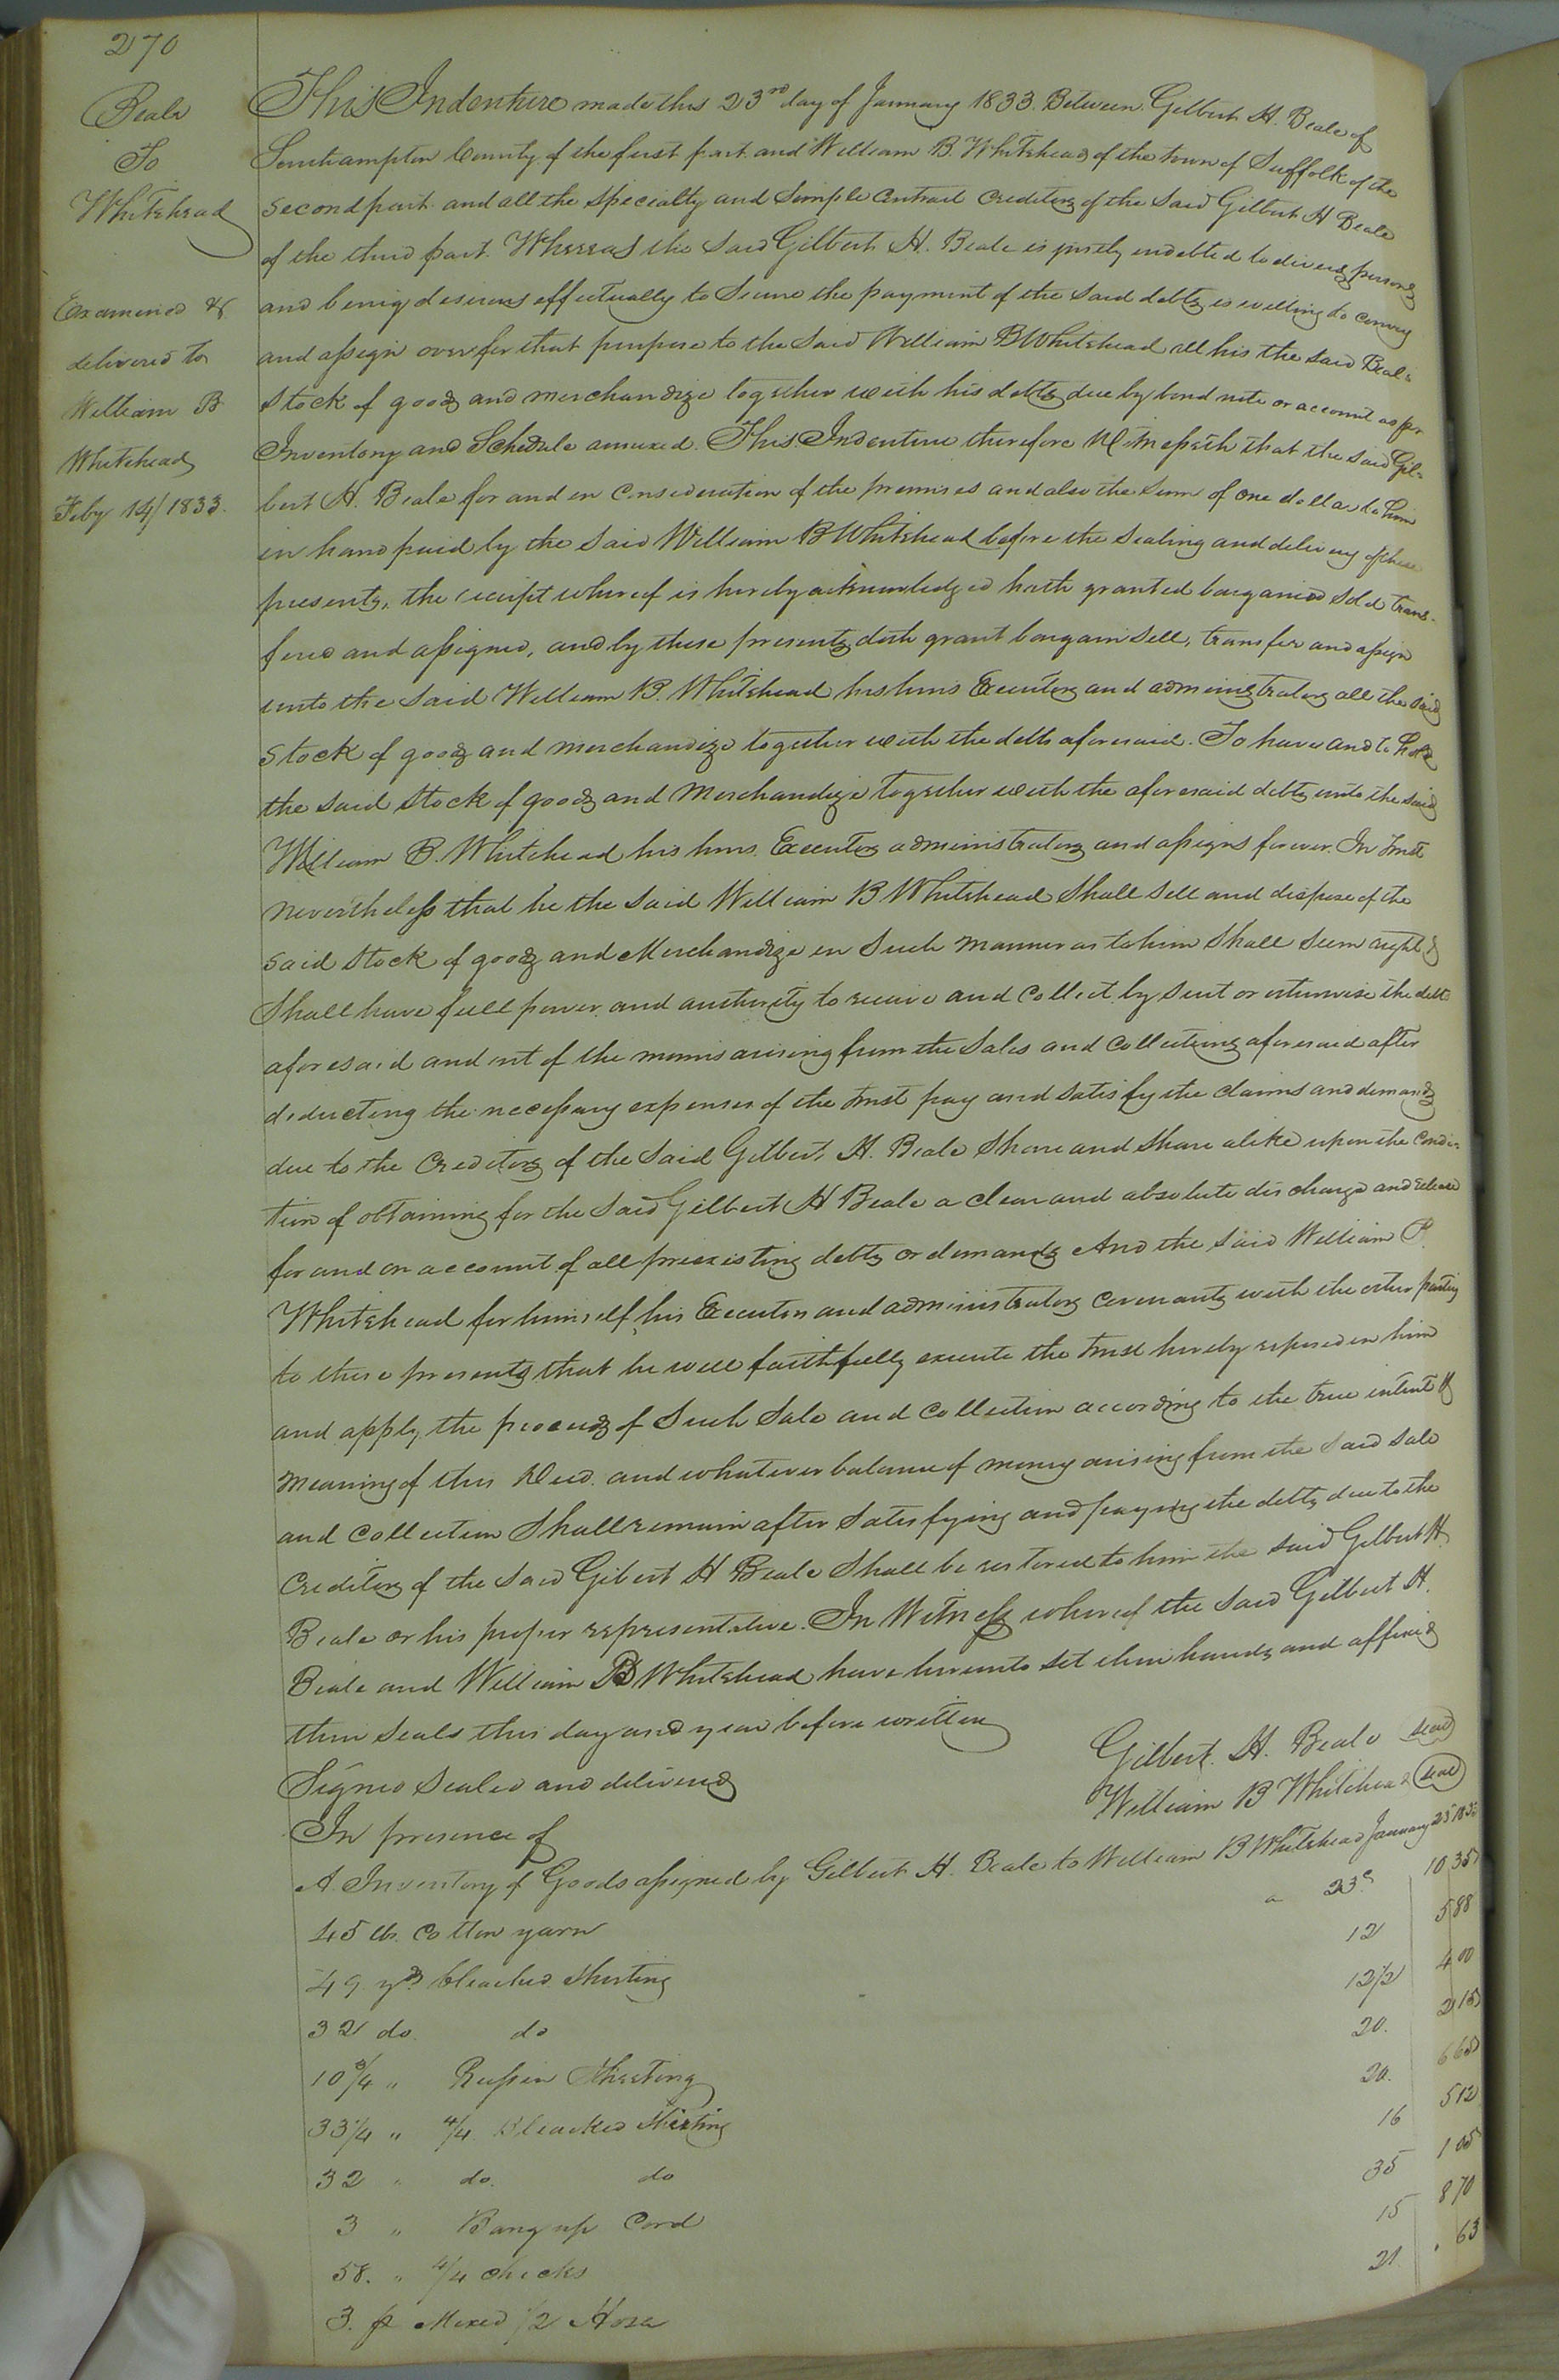 270
Beale
To
Whitehead
Examined &
delivered to
William B
Whitehead
Feby 14/1833.
This Indenture made this 23rd day of January 1833. Between Gilbert H. Beale of
Southampton County of the first part and William B. Whitehead of the town of Suffolk of the
second part and all the specialty and simple contract creditors of the said Gilbert H Beale
of the third part. Whereas the said Gilbert H. Beale is justly indebted to divers persons
and being desirous effectually to secure the payment of the said debts is willing to convey
and assign over for that purpose to the said William B Whitehead all his the said Beal's
stock of goods and merchandize together with his debts due by bond note or account as per
Inventory and Schedule annexed. This Indenture therefore Witnesseth that the said Gil-
bert H. Beale for and in consideration of the premises and also the sum of one dollar to him
in hand paid by the said William B Whitehead before the sealing and delivery of these
presents, the receipt whereof is hereby acknowledged hath granted bargained sold trans-
fered and assigned, and by these presents doth grant bargain sell, transfer and assign
unto the said William B. Whitehead his heirs Executors and administrators all the said
stock of goods and merchandize together with the debts aforesaid. To have and to hold
the said stock of goods and Merchandize together with the aforesaid debts unto the said
William B. Whitehead his heirs. Executors administrators and assigns forever. In trust
nevertheless that he the said William B Whitehead shall sell and dispose of the
said stock of goods and Merchandize in such manner as to him shall seem right &
shall have full power and authority to receive and collect by suit or otherwise the debts
aforesaid and out of the monies arising from the sales and collections aforesaid after
deducting the necessary expenses of the trust pay and satisfy the claims and demands
due to the creditors of the said Gilbert H. Beale share and share alike upon the condi-
tion of obtaining for the said Gilbert H Beale a clear and absolute discharge and release
for and on account of all preexisting debts or demands And the said William B.
Whitehead for himself, his Executors and administrators covenants with the other parties
to these presents that he will faithfully execute the trust hereby reposed in him
and apply the proceeds of such sale and collection according to the true intent &
meaning of this Deed. and whatever balance of money arising from the said sale
and collection shall remain after satisfying and paying the debts due to the
creditors of the said Gibert H Beale shall be restored to him the said Gilbert H.
Beale or his proper representative. In Witness whereof the said Gilbert H.
Beale and William B Whitehead have hereunto set their hands and affixed
their seals this day and year before written
Signed Sealed and delivered
In presence of
Gilbert. H. Beale seal
William B Whitehead seal
A Inventory of Goods assigned by Gilbert H. Beale to William B Whitehead January 25 1833
45 lb. Cotton yarn a 23c 10 35
49 yds bleached shirting 12 5 88
32 do. do 12 1/2 4 00
10 3/4 " Russia Sheeting 20. 2 15
33 1/4 " 4/4 Bleached Shirting 20. 6 65
32 " do. do 16 5 12
3 " Bang up Cord 35 1 05
58. " 4/4 checks 15 8 70
3. pr Mixed 1/2 Hose 21 . 63